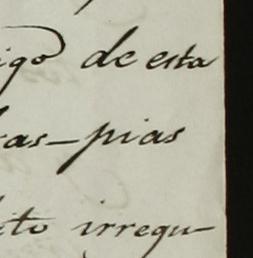 igo de esta
as-pias
to irregu-